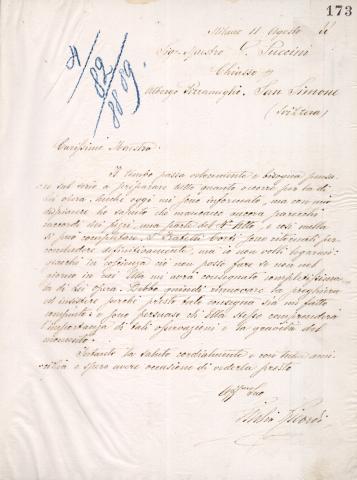 173
Milano 11 Agosto 88
Sig. Maestro G. Puccini
Chiasso per
Albergo San Simone
(Svizzera)
4/
89/
88.89.
Carissimo Maestro
Il tempo passa velocemente e bisogna pensa-
re sul serio a preparare tutto quanto occorre per la di
Lei opera. Anche oggi mi sono informato, ma con mio
dispiacere ho saputo che mancano ancora parecchi
raccordi dei pezzi, una parte del 4° Atto, e così nulla
si può completare. I Fratelli Corti sono ritornati per
concludere definitivamente, ma io non volli legarmi
giacchè in coscienza no non posso farlo se non nel
giorno in cui Ella mi avrà consegnata completissima
la di Lei opera. Debbo quindi rinnovare la preghiera
ed insistere perchè presto tale consegna sia un fatto
compiuto: e sono persuaso che Ella stesso comprenderà
l'importanza di tali osservazioni e la gravità del
momento.
Intanto La saluto cordialmente e con tutta ami-
cizia e spero avere occasione di vederla presto
Aff.mo Suo
Giulio Ricordi